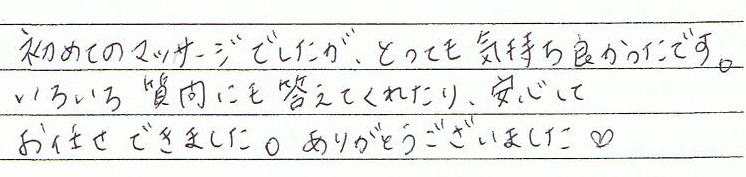 初めてのマッサージでしたが、とっても気持ち良かったです。
いろいろ質問にも答えてくれたり、安心して
お任せできました。ありがとうございました♡